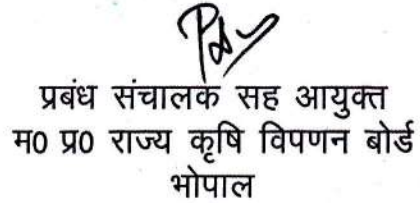 प्रबंध संचालक सह आयुक्त
म0 प्र0 राज्य कृषि विपणन बोर्ड
भोपाल